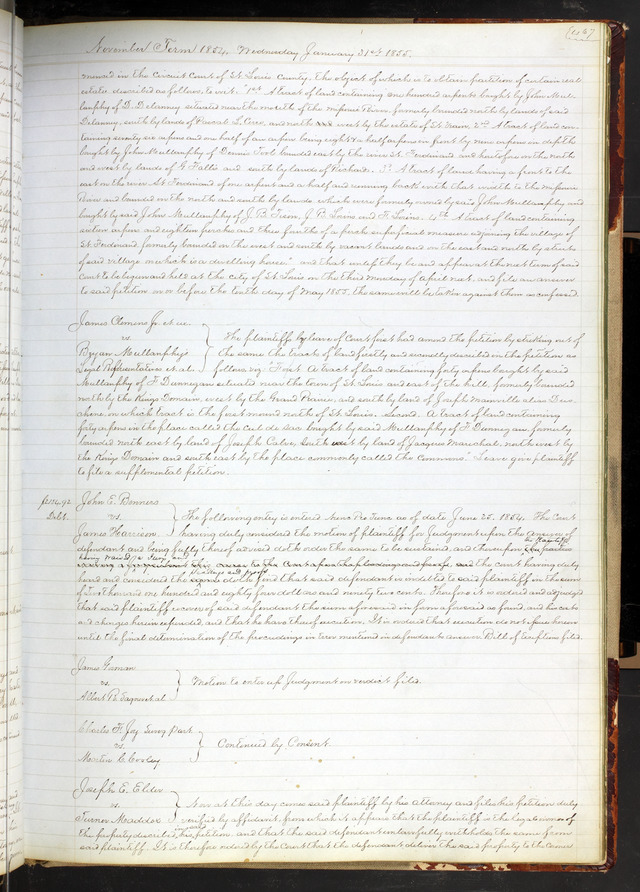 November Term 1854. Wednesday January 31st 1855.
menced in the Circuit Court of St. Louis County, the object of which is to obtain partition of certain real
estate described as follows, to wit: "1st A tract of land containing one hundred arpents bought by John Mull-
anphy of D. Delaunay situated near the mouth of the Missouri River, formerly bounded north by lands of said
Delaunay, south by lands of Pascal L. Cerre, and north west by the estate of St. Vrain. 2nd A tract of land con-
taining seventy six arpens and one half of an arpen being eight & a half arpens in front by nine arpens in depth
bought by John Mullanphy of Dennis bounded east by the river St. Ferdinand and heretofore on the north
and west by lands of G. and south by lands of Richard. 3d A tract of land having a front to the
east on the river St. Ferdinand of one arpent and a half and running back with that width to the Missouri
River and bounded on the north and south by lands which were formerly owned by said John Mullanphy and
bought by said John Mullanphy of J. B. J. P. and F. 4th A tract of land containing
arpens and eighteen perches and three fourths of a perch superficial measure adjoining the village of
St. Ferdinand formerly bounded on the west and south by vacant lands and on the east and north by streets
of said village on which is a dwelling house" and that unless they be and appear at the next term of said
Court to be begun and held at the city of St. Louis on the third Monday of April next, and file an answer
to said petition on or before the tenth day of May 1855, the same will be taken against them as confessed.
James Clemens Jr. et ux.
vs.
Bryan Mullanphy's
Legal Representatives et al.
The plaintiffs by leave of Court first had amend the petition by striking out of
the same the tracts of land firstly and secondly described in the petition as
follows viz: "First. A tract of land containing forty arpens bought by said
Mullanphy of F. Dunnegan situated near the town of St. Louis and east of the hill, formerly bounded
north by the Kings Domain, west by the Grand Prairie, and south by land of Joseph Mainville alias Des-
chene, on which tract is the first mound north of St. Louis. Second. A tract of land containing
forty arpens in the place called the cul de sac bought by said Mullanphy of F. Dunnegan, formerly
bounded north east by land of Joseph Calve, South west by land of Jacques Marechal, north west by
the Kings Domain and south east by the place commonly called the Commons." Leave give plaintiff
to file a supplemental petition.
$2184.92
Debt.
John E. Bonners
vs.
James Harrison
The following entry is entered Nunc Pro Tunc as of date June 25. 1854. The Court
having duly considered the motion of plaintiff for Judgment upon the answer of
defendant and being fully thereof advised doth order the same to be sustained, and thereupon
the plaintiff
the court having duly
pleadings and proofs
heard and considered the doth find that said defendant is indebted to said plaintiff in the sum
of Two thousand one hundred and eighty four dollars and ninety two cents. Therefore it is ordered and adjudged
that said plaintiff recover of said defendant the sum aforesaid in form aforesaid as found, and his costs
and charges herein expended, and that he have thereof execution. It is ordered that execution do not issue herein
until the final determination of the proceedings in mentioned in defendants answer. Bill of Exceptions filed.
James Gorman
vs.
Albert et al
Motion to enter up Judgment on verdict filed.
Charles H.
vs.
Martin C.
Continued by Consent.
Joseph E. Elder
vs.
Turner Maddox
Now at this day comes said plaintiff by his Attorney and files his petition duly
verified by affidavit, from which it appears that the plaintiff is the legal owner of
the property described in his petition, and that the said defendant unlawfully withholds the same from
said plaintiff. It is therefore ordered by the Court that the defendant deliver the said property to the Coroner